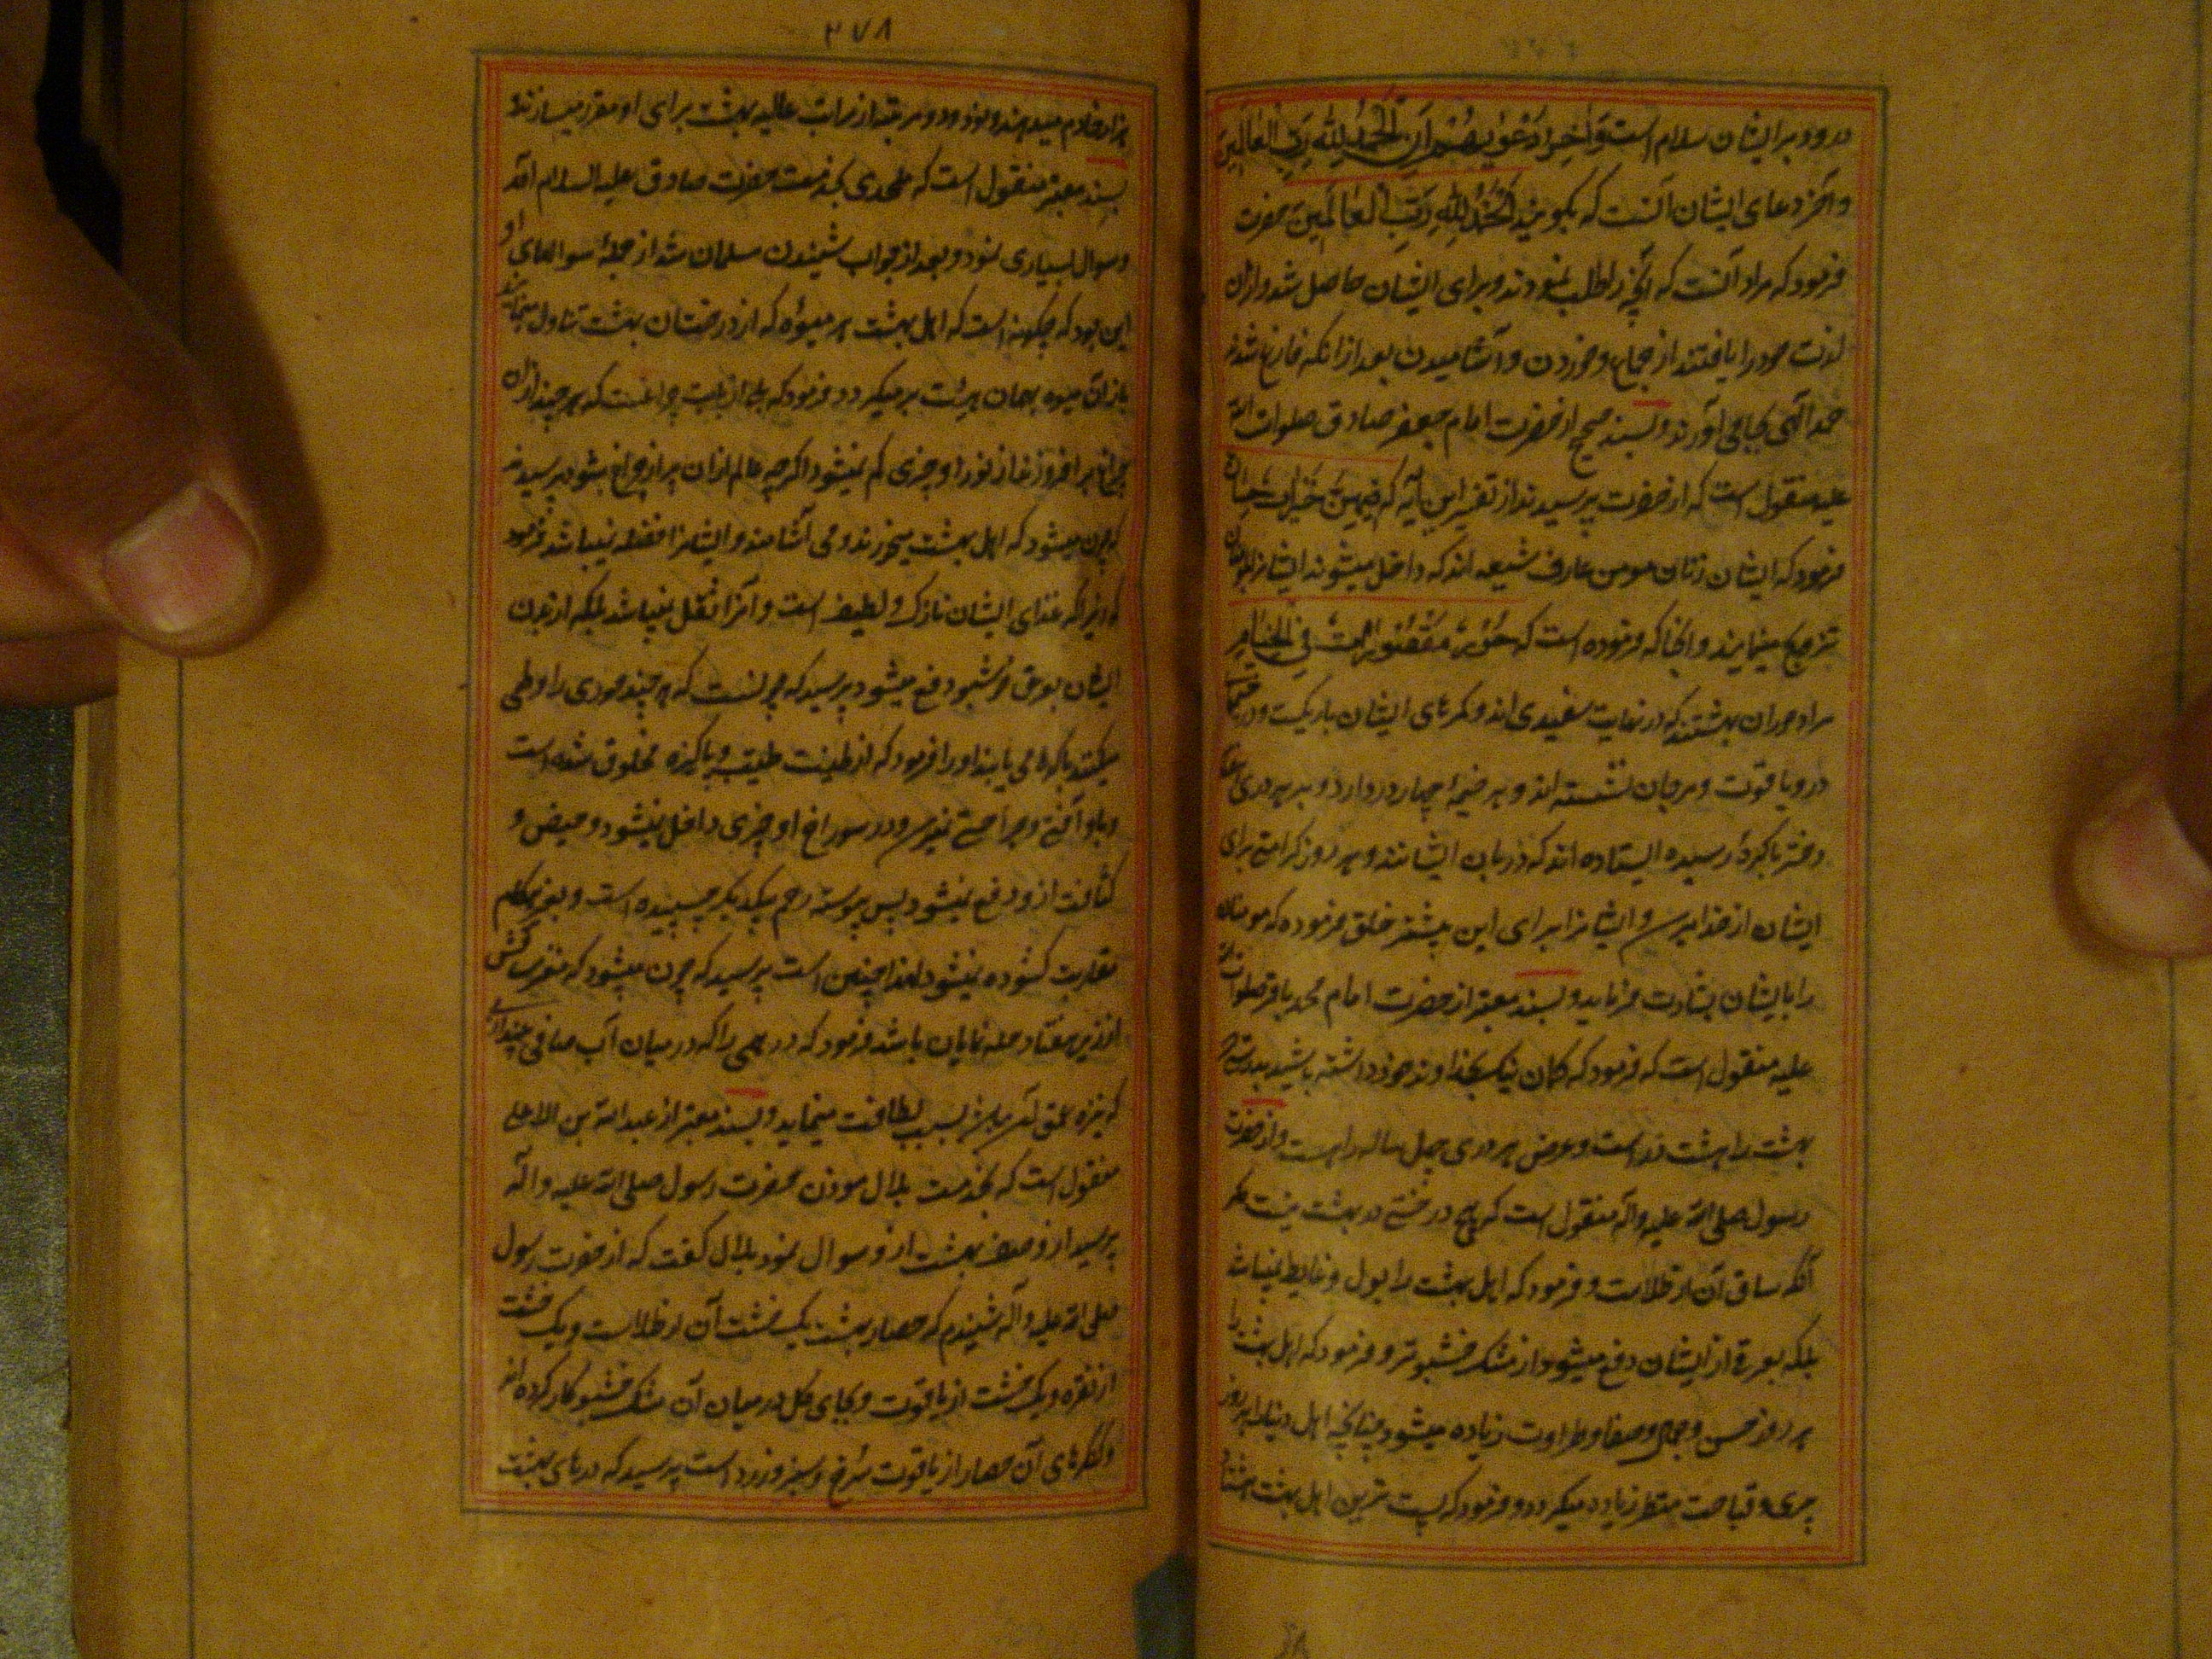 درود بر ایشان سلام است وَآخِرُ دَعْوٰیهُمْ اَنِ الْحَمْدُ لِلّٰهِ رَبِّ الْعَالَمِینَ
و آخر دعای ایشان آنست که بگویند اَلْحَمْدُ لِلّٰهِ رَبِّ الْعَالَمِینَ حضرت
فرمود که مراد آنست که آنچه را طلب نمودند و برای ایشان حاصل شد و ازان
لذت خود را یافتند از جماع و خوردن و آشامیدن بعد از انکه فارغ شدند
حمد الٰهی بجا می آورند و بسند صحیح از حضرت امام جعفر صادق صلوات الله
علیه منقول است که از حضرت پرسیدند از تفسیر این آیه که فِیهِنَّ خَیْرَاتٌ حِسَانٌ
فرمود که ایشان زنان مومن عارف شیعه اند که داخل میشوند ایشانرا بمومنان
تزویج مینمایند و انجا که فرموده است که حُورٌ مَقْصُورَاتٌ فِی الْخِیَامِ
مراد حوران بهشتند که در نهایت سفیدی اند و کمرهای ایشان باریکست و در خیمهای
در و یاقوت و مرجان نشسته اند و هر خیمهٔ چهار در دارد و بر هر دری
دختر باکرهٔ رسیده ایستاده اند که دربان ایشانند و هر روز کرامتی برای
ایشان از خدا میرسد و ایشانرا برای این پیشتر خلق فرموده که مومنان
را بایشان بشارت فرماید و بسند معتبر از حضرت امام محمد باقر صلوات الله
علیه منقول است که فرمود که گمان نیک بخداوند خود داشته باشید بدرستیکه
بهشت را هشت در است و عرض هر دری چهل ساله راهست و از حضرت
رسول صلی الله علیه و آله منقول است که هیچ درختی در بهشت نیست مگر
آنکه ساق آن از طلاست و فرمود که اهل بهشت را بول و غایط نمیباشد
بلکه بعرق از ایشان دفع میشود از مشک خوشبوتر و فرمود که اهل بهشت را
هر روز حسن و جمال و صفا و طراوت زیاده میشود چنانچه اهل دنیا را هر روز
پیری و قباحت منظر زیاده میگردد و فرمود که پست ترین اهل بهشت هشتاد
۲۷۸
هزار خادم میدهند و نود و دو مرتبه از مراتب عالیه بهشت برای او مقرر میسازند
بسند معتبر منقول است که ملحدی بخدمت حضرت صادق علیه السلام آمد
و سوال بسیاری نمود و بعد از جواب شنیدن مسلمان شد از جملهٔ سوالهای او
این بود که چگونه است که اهل بهشت هر میوهٔ که از درختان بهشت تناول مینمایند
باز آن میوه بهمان هیئت بر میگردد فرمود که بلی از بابت چراغست که هر چند ازان
چراغها بر افروزند از نور او چیزی کم نمیشود اگر چه عالم ازان پر از چراغ بشود پرسید
که چون میشود که اهل بهشت میخورند و می آشامند و ایشانرا فضله نمیباشد فرمود
که زیرا که غذای ایشان نازک و لطیف است و آنرا ثقل نمیباشد بلکه از بدن
ایشان بعرق خوشبو دفع میشود پرسید که چونست که هر چند حوری را وطی
میکنند باکره می یابند او را فرمود که از طینت طیب و پاکیزه مخلوق شده است
و باو آفتی و جراحتی نمیرسد و در سوراخ او چیزی داخل نمیشود و حیض و
کثافت ازو دفع نمیشود پس پیوسته رحم بیکدیگر چسپیده است و بغیر هنگام
مقاربت گشوده نمیشود لهذا چنین است پرسید که چون میشود که مغز ساقش
از زیر هفتاد حله نمایان باشد فرمود که درهمی را که در میان آب صافی بیندازی
که نیزه عمق آن باشد بسبب لطافت مینماید و بسند معتبر از عبدالله بن علی
منقول است که بخدمت بلال موذن حضرت رسول صلی الله علیه و آله
پرسید از وصف بهشت ازو سوال نمود بلال گفت که از حضرت رسول
صلی الله علیه و آله شنیدم که حصار بهشت یک خشت آن از طلاست و یک خشت
از نقره و یک خشت از یاقوت و بجای گل در میان آن مشک خوشبو کار کرده اند
و کنگرهای آن حصار از یاقوت سرخ و سبز و زرد است پرسید که درهای بهشت